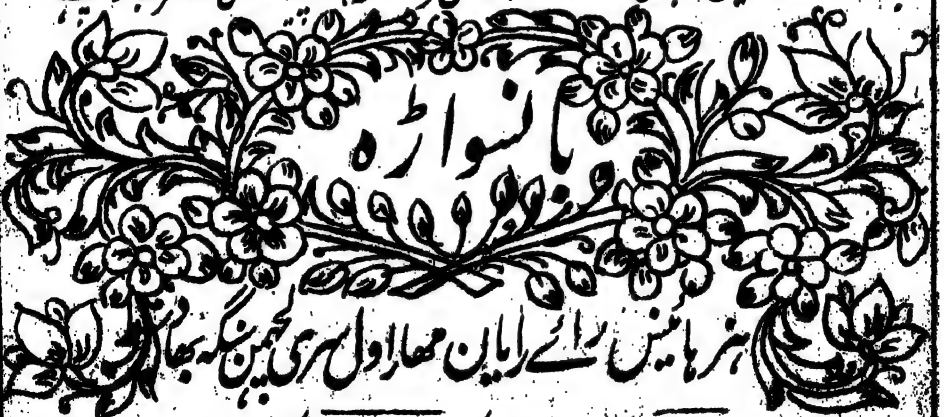 بانسواڑہ
ہنر ہائینس رائے رایان مهاراول سری لچھمن سنگھ بھا